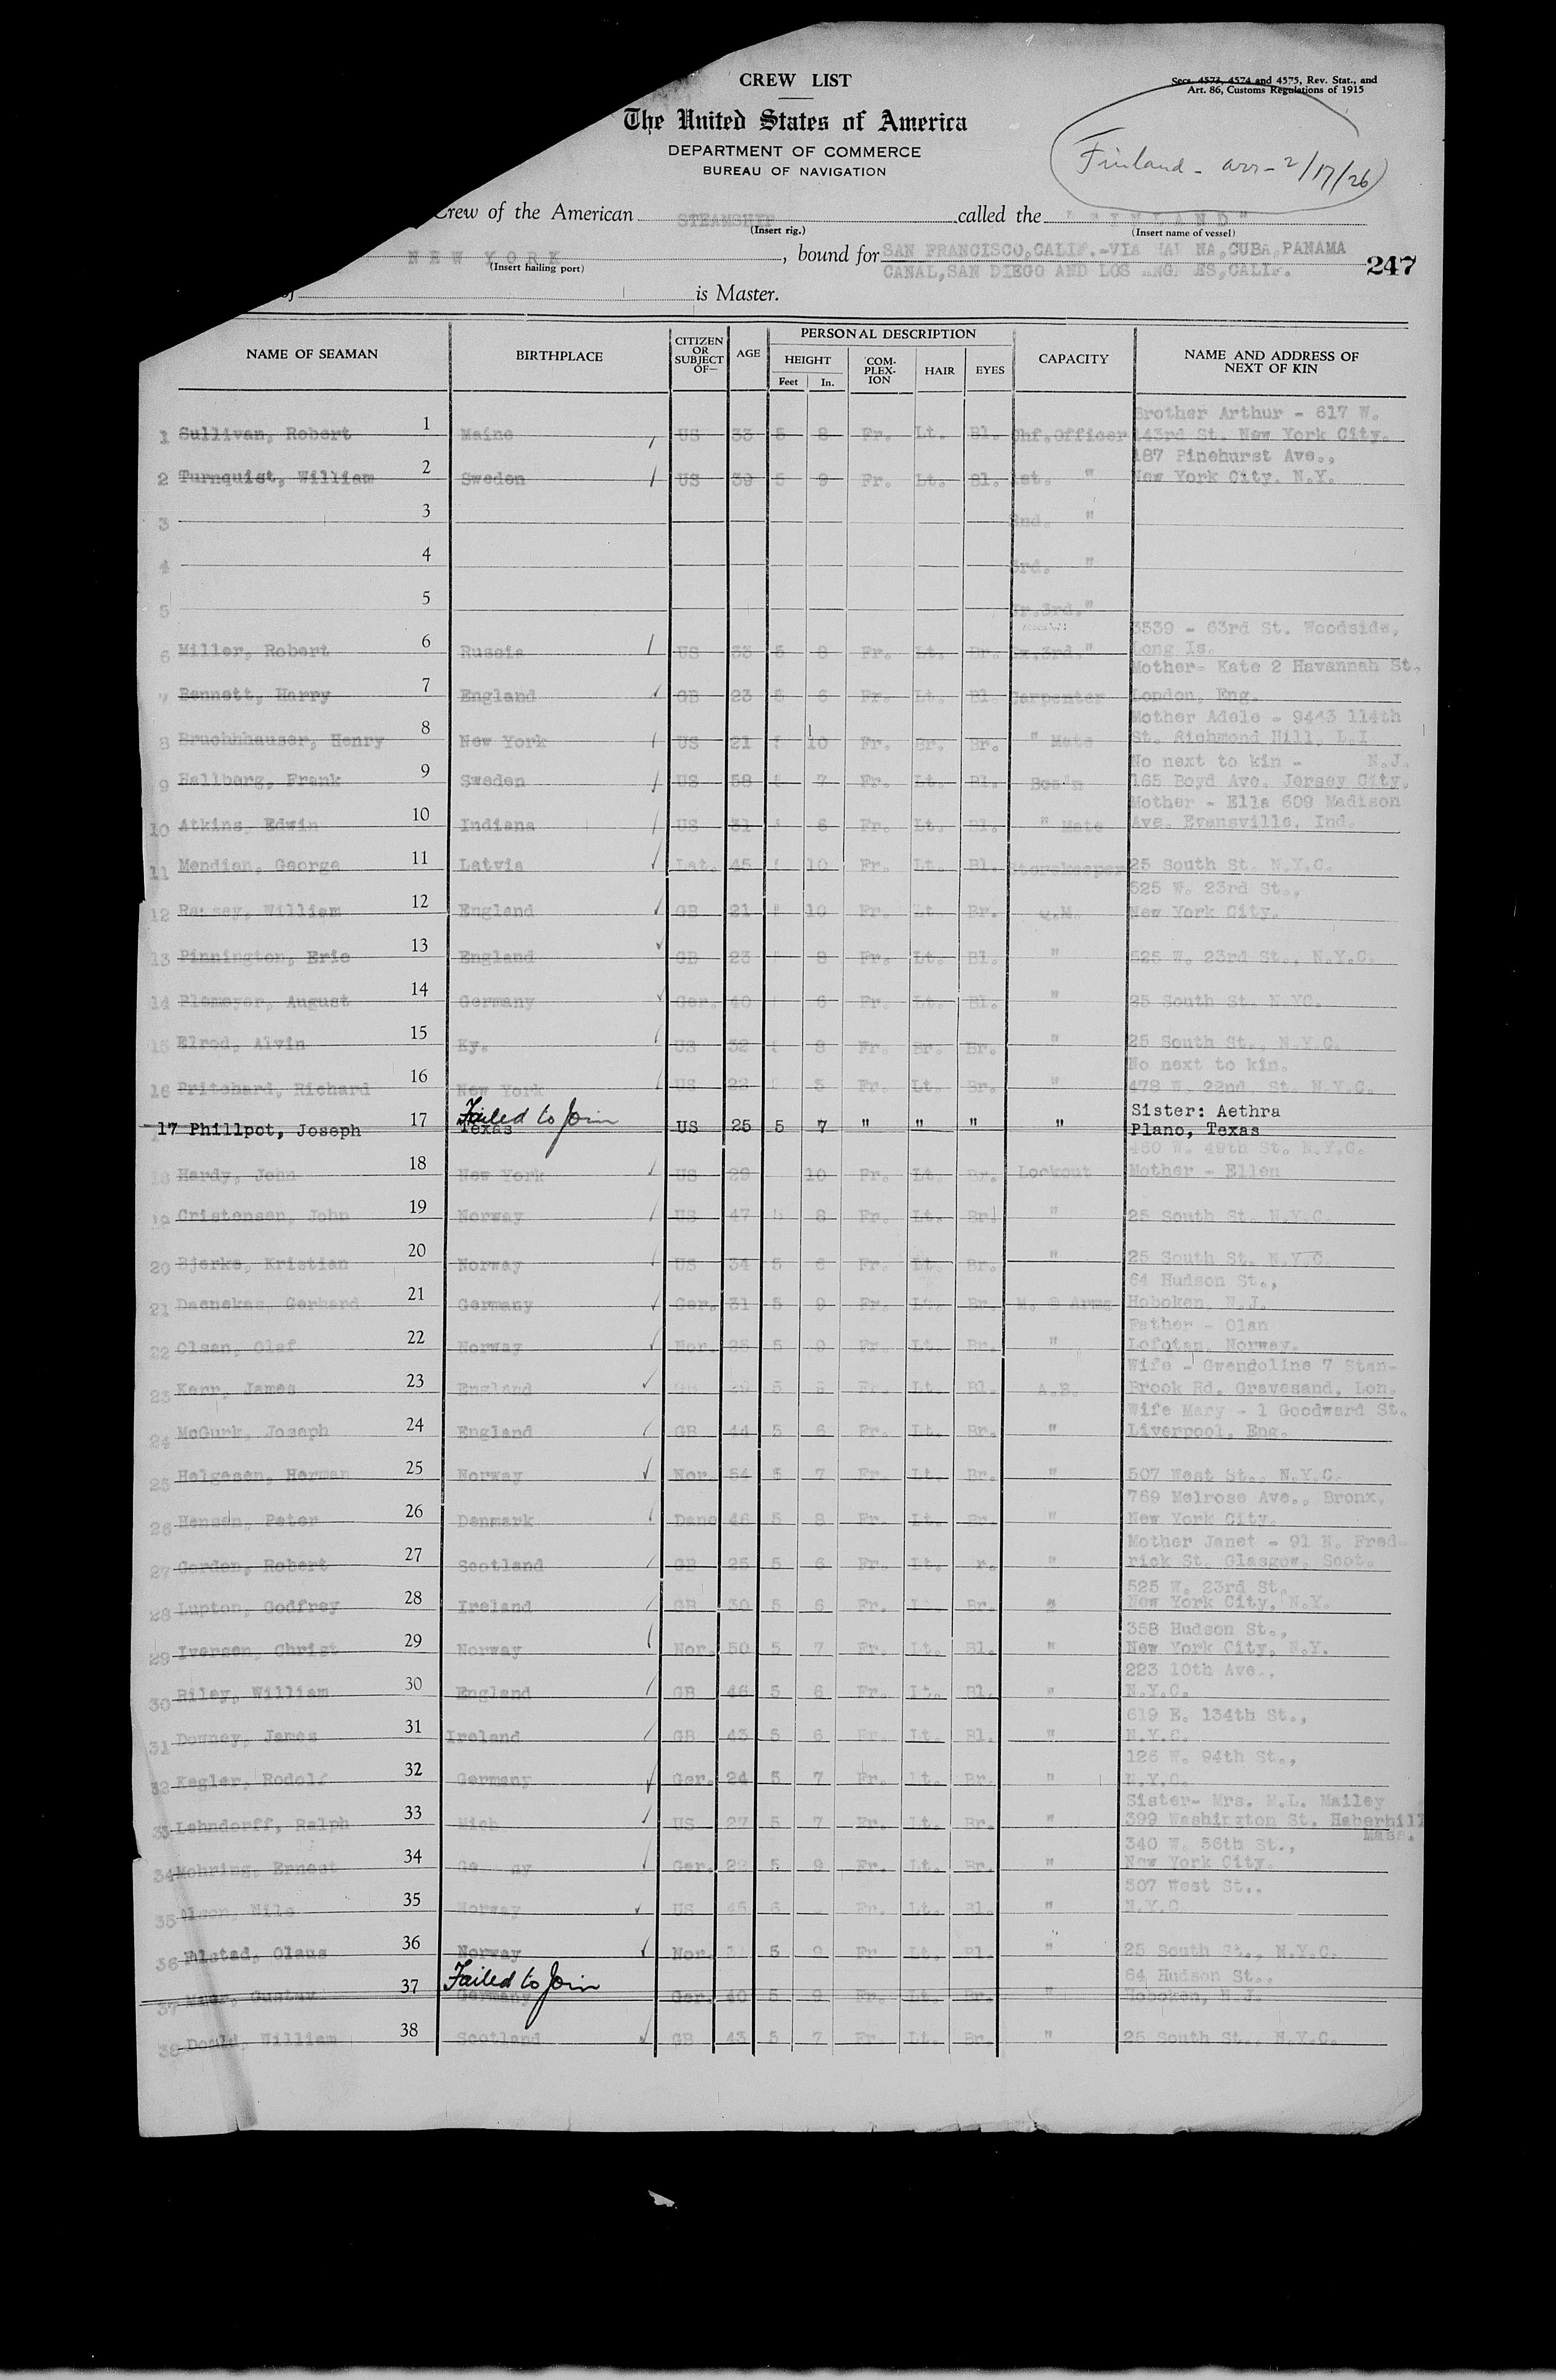 CREW LIST
Secs. 4573, 4574 and 4575, Rev. Stat., and
Art. 86, Customs Regulations of 1915
The United States of America
DEPARTMENT OF COMMERCE
BUREAU OF NAVIGATION
Finland - arr - 2/17/26
Crew of the American STEAMSHIP called the "FINLAND"
(Insert rig.) (Insert name of vessel)
NEW YORK, bound for SAN FRANCISCO, CALIF.-VIA HAVANA, CUBA, PANAMA
(Insert hailing port) CANAL, SAN DIEGO AND LOS ANGELES, CALIF. 247
is Master.
NAME OF SEAMAN BIRTHPLACE CITIZEN OR SUBJECT OF— AGE PERSONAL DESCRIPTION CAPACITY NAME AND ADDRESS OF NEXT OF KIN
HEIGHT COM-PLEX-ION HAIR EYES
Feet In.
Brother Arthur - 617 W.
1 Sullivan, Robert 1 Maine US 33 5 8 Fr. Lt. Bl. Chf. Officer 143rd St. New York City.
187 Pinehurst Ave.,
2 Turnquist, William 2 Sweden US 39 5 9 Fr. Lt. Bl. 1st. " New York City. N.Y.
3 3 2nd. "
4 4 3rd. "
5 5 Jr.3rd."
3539 - 63rd St. Woodside,
6 Miller, Robert 6 Russia US 33 5 8 Fr. Lt. Br. Ex.3rd." Long Is.
Mother- Kate 2 Havannah St.
7 Bennett, Harry 7 England GB 23 5 6 Fr. Lt. Bl. Carpenter London, Eng.
Mother Adele - 9443 114th
8 Bruchhauser, Henry 8 New York US 21 5 10 Fr. Br. Br. " Mate St. Richmond Hill, L.I.
No next to kin - N.J.
9 Hallberg, Frank 9 Sweden US 58 5 7 Fr. Lt. Bl. Bos'n 165 Boyd Ave. Jersey City.
Mother - Ella 609 Madison
10 Atkins, Edwin 10 Indiana US 31 5 6 Fr. Lt. Bl. " Mate Ave. Evansville, Ind.
11 Mendian, George 11 Latvia Lat. 45 5 10 Fr. Lt. Bl. Storekeeper 25 South St. N.Y.C.
525 W. 23rd St.,
12 Ramsey, William 12 England GB 21 5 10 Fr. Lt. Br. Q.M. New York City.
13 Pinnington, Eric 13 England GB 23 8 Fr. Lt. Bl. " 525 W. 23rd St., N.Y.C.
14 Plemeyer, August 14 Germany Ger. 40 6 Fr. Lt. Bl. " 25 South St. N.YC.
15 Elrod, Alvin 15 Ky. US 32 8 Fr. Br. Br. " 25 South St., N.Y.C.
No next to kin.
16 Pritchard, Richard 16 New York US 22 5 Fr. Lt. Br. " 478 W. 22nd. St. N.Y.C.
Failed to Join Sister: Aethra
17 Phillpot, Joseph 17 Texas US 25 5 7 " " " " Plano, Texas
460 W. 49th St. N.Y.C.
18 Hardy, John 18 New York US 29 10 Fr. Lt. Br. Lookout Mother - Ellen
19 Cristensen, John 19 Norway US 47 5 8 Fr. Lt. Br. " 25 South St. N.Y.C.
20 Bjerke, Kristian 20 Norway US 34 5 6 Fr. Lt. Br. " 25 South St. N.Y.C.
64 Hudson St.,
21 Daenekas, Gerhard 21 Germany Ger. 31 5 9 Fr. Lt. Br. M. @ Arms Hoboken, N.J.
Father - Olan
22 Olsen, Olaf 22 Norway Nor. 25 5 9 Fr. Lt. Br. " Lofotan, Norway.
Wife - Gwendoline 7 Stan-
23 Kerr, James 23 England GB 29 5 8 Fr. Lt. Bl. A.B. Brook Rd. Gravesand, Lon.
Wife Mary - 1 Goodward St.
24 McGurk, Joseph 24 England GB 44 5 6 Fr. Lt. Br. " Liverpool, Eng.
25 Helgesen, Herman 25 Norway Nor. 54 5 7 Fr. Lt. Br. " 507 West St., N.Y.C.
769 Melrose Ave., Bronx,
26 Hensen, Peter 26 Denmark Dane 46 5 8 Fr. Lt. Br. " New York City.
Mother Janet - 91 N. Fred-
27 Gordon, Robert 27 Scotland GB 25 5 6 Fr. Lt. r. " rick St. Glasgow, Scot.
525 W. 23rd St.
28 Lupton, Godfrey 28 Ireland GB 30 5 6 Fr. Lt. Br. " New York City, N.Y.
358 Hudson St.,
29 Iversen, Christ 29 Norway Nor. 50 5 7 Fr. Lt. Bl. " New York City, N.Y.
223 10th Ave.,
30 Riley, William 30 England GB 46 5 6 Fr. Lt. Bl. " N.Y.C.
619 E. 134th St.,
31 Downey, James 31 Ireland GB 43 5 6 Fr. Lt. Bl. " N.Y.C.
126 W. 94th St.,
32 Kegler, Rodolf 32 Germany Ger. 24 5 7 Fr. Lt. Br. " N.Y.C.
Sister- Mrs. M.L. Mailey
33 Lehndorff, Ralph 33 Mich US 27 5 7 Fr. Lt. Br. " 399 Washington St. Haberhill
Mass.
340 W. 56th St.,
34 Mohring, Ernest 34 Germany Ger. 29 5 9 Fr. Lt. Br. " New York City.
507 West St..
35 Olsen, Nils 35 Norway US 45 6 Fr. Lt. Bl. " N.Y.C.
36 Falstad, Olaus 36 Norway Nor. 5 9 Fr Lt. Bl. " 25 South St., N.Y.C.
Failed to Join 64 Hudson St.,
37 Gustav 37 Germany Ger. 40 5 9 Fr. Lt. Br. " Hoboken, N.J.
38 Dould, William 38 Scotland GB 43 5 7 Fr. Lt. Br. " 25 South St., N.Y.C.